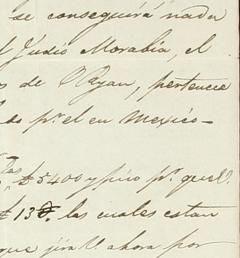 se conseguirá nada
Judio Morabia, el
de Ryan, pertenece
pr el en Mexico—
$5400 y pico pr que
$13 las cuales estan
que jira U ahora por